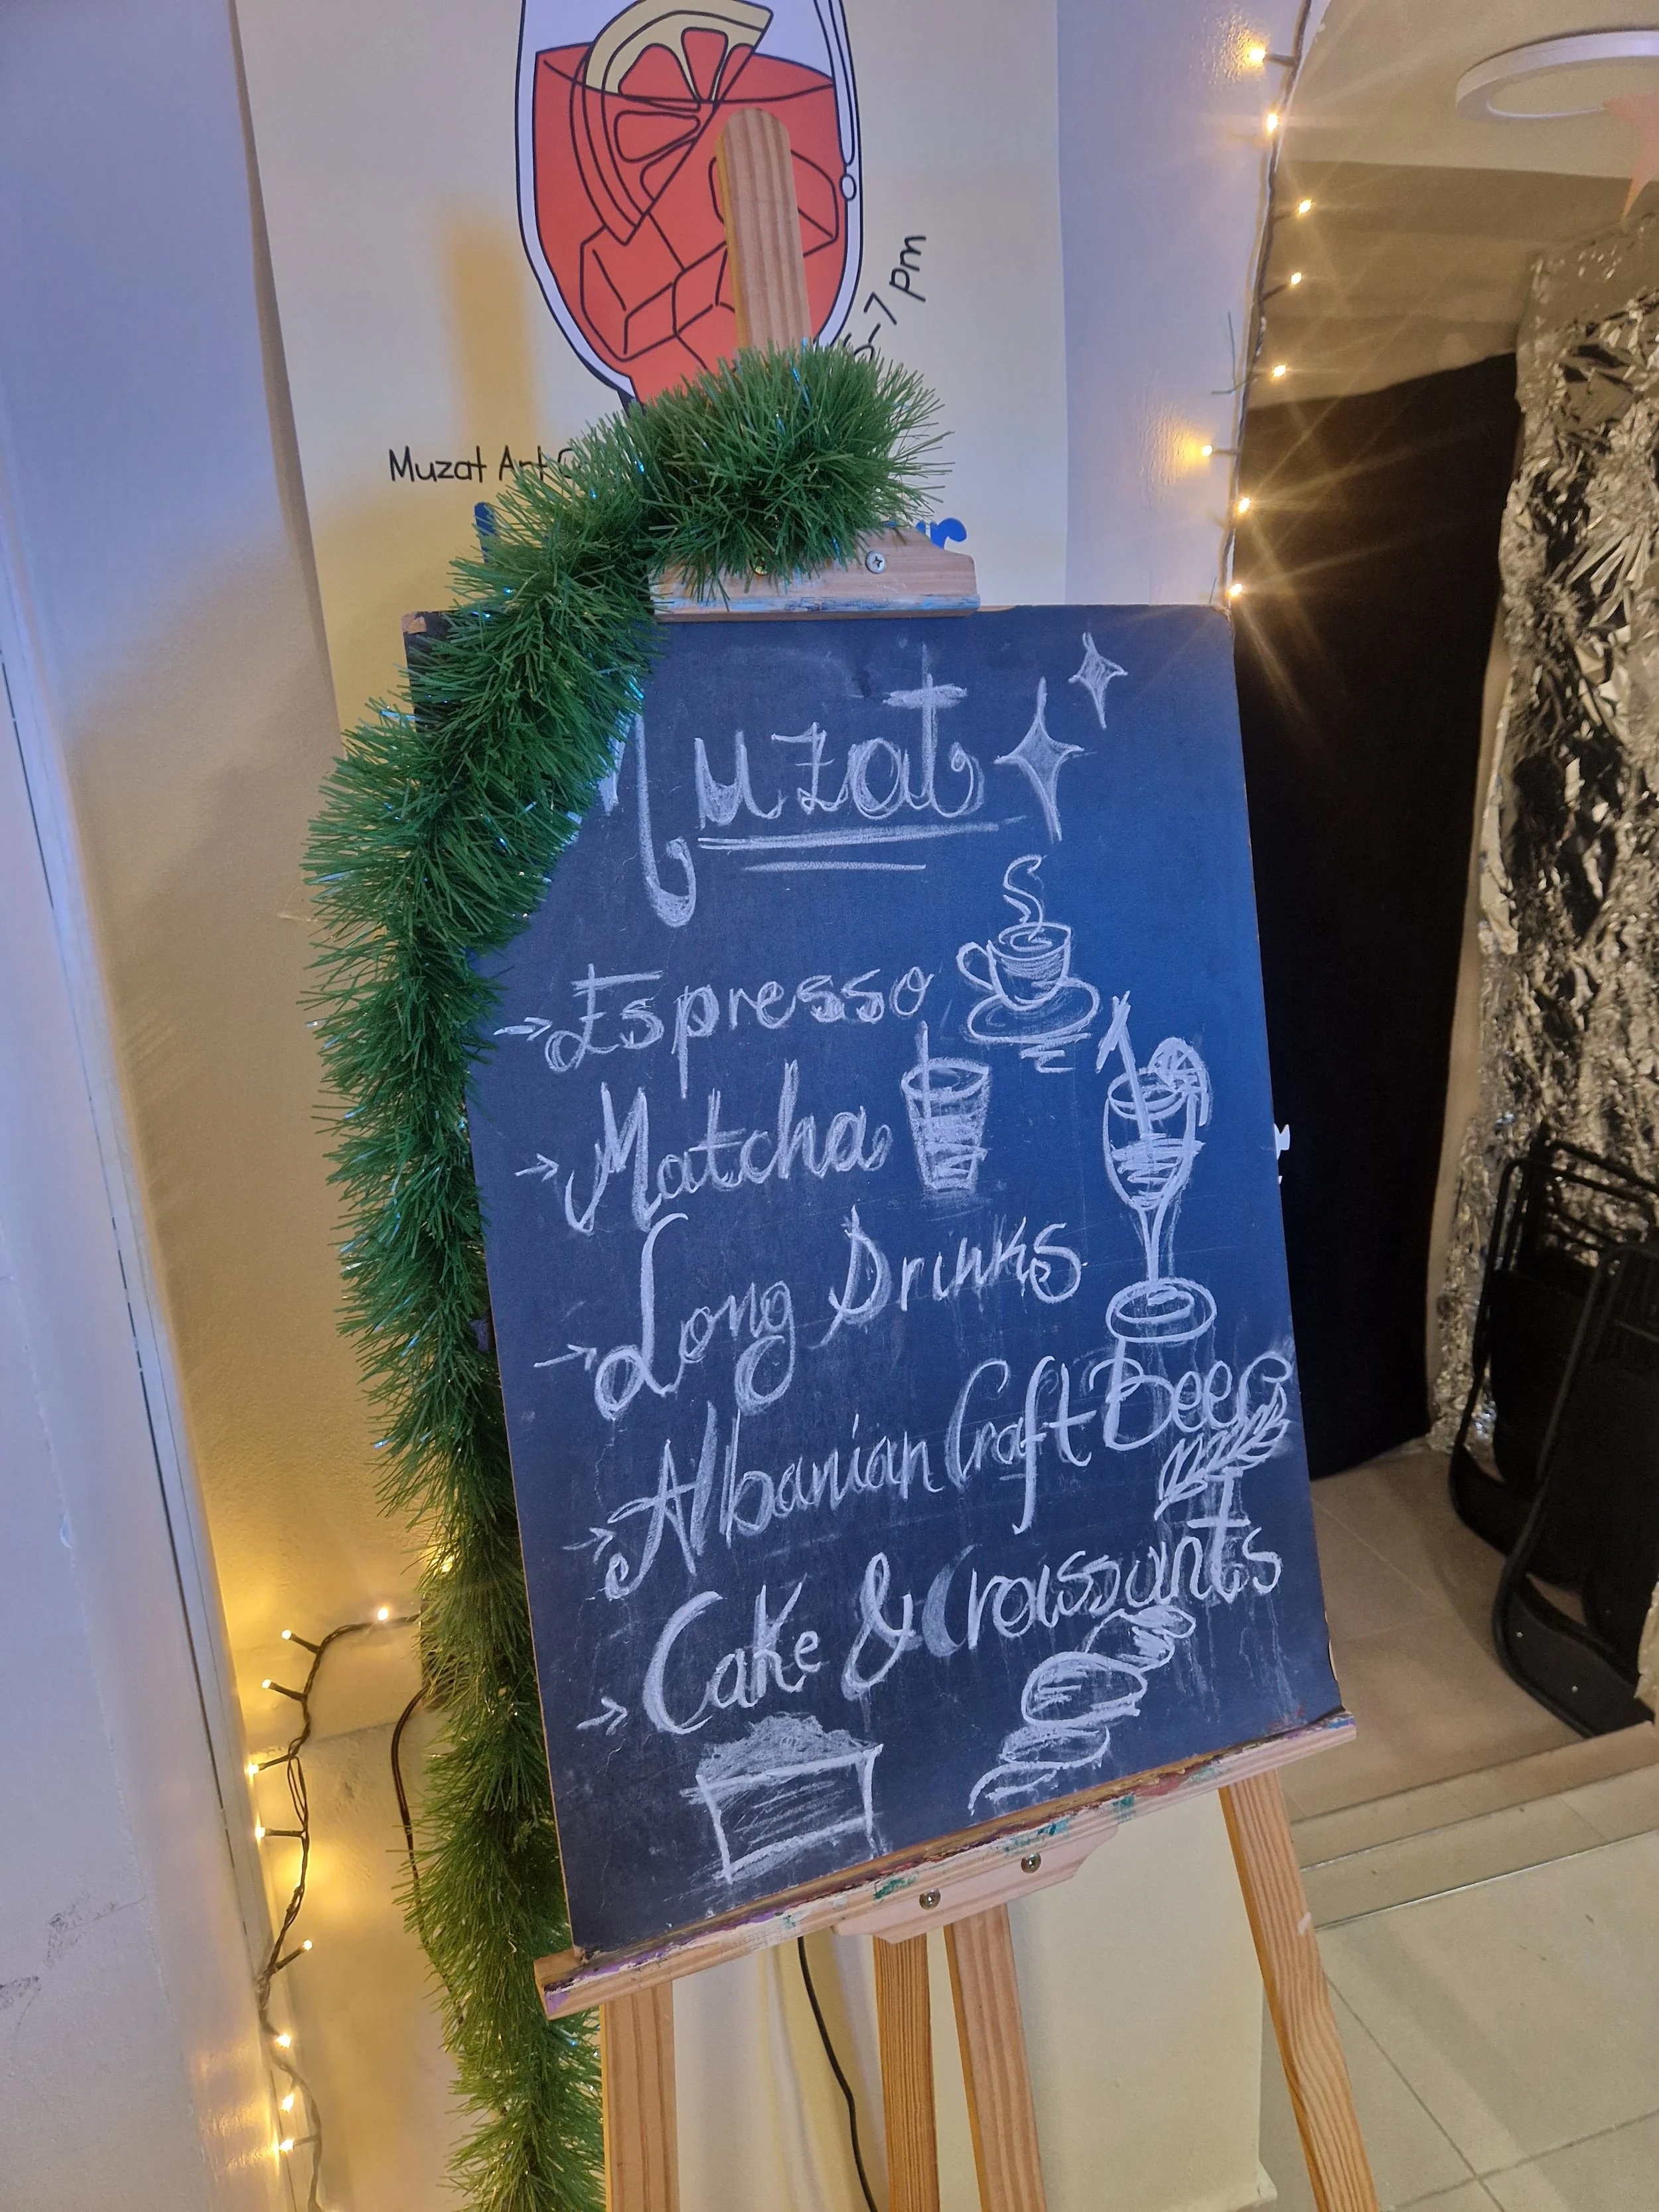 5-7 pm
Muzat Art
Muzat
→ Espresso
→ Matcha
→ Long Drinks
→ Albanian Craft Beer
→ Cake & Croissants